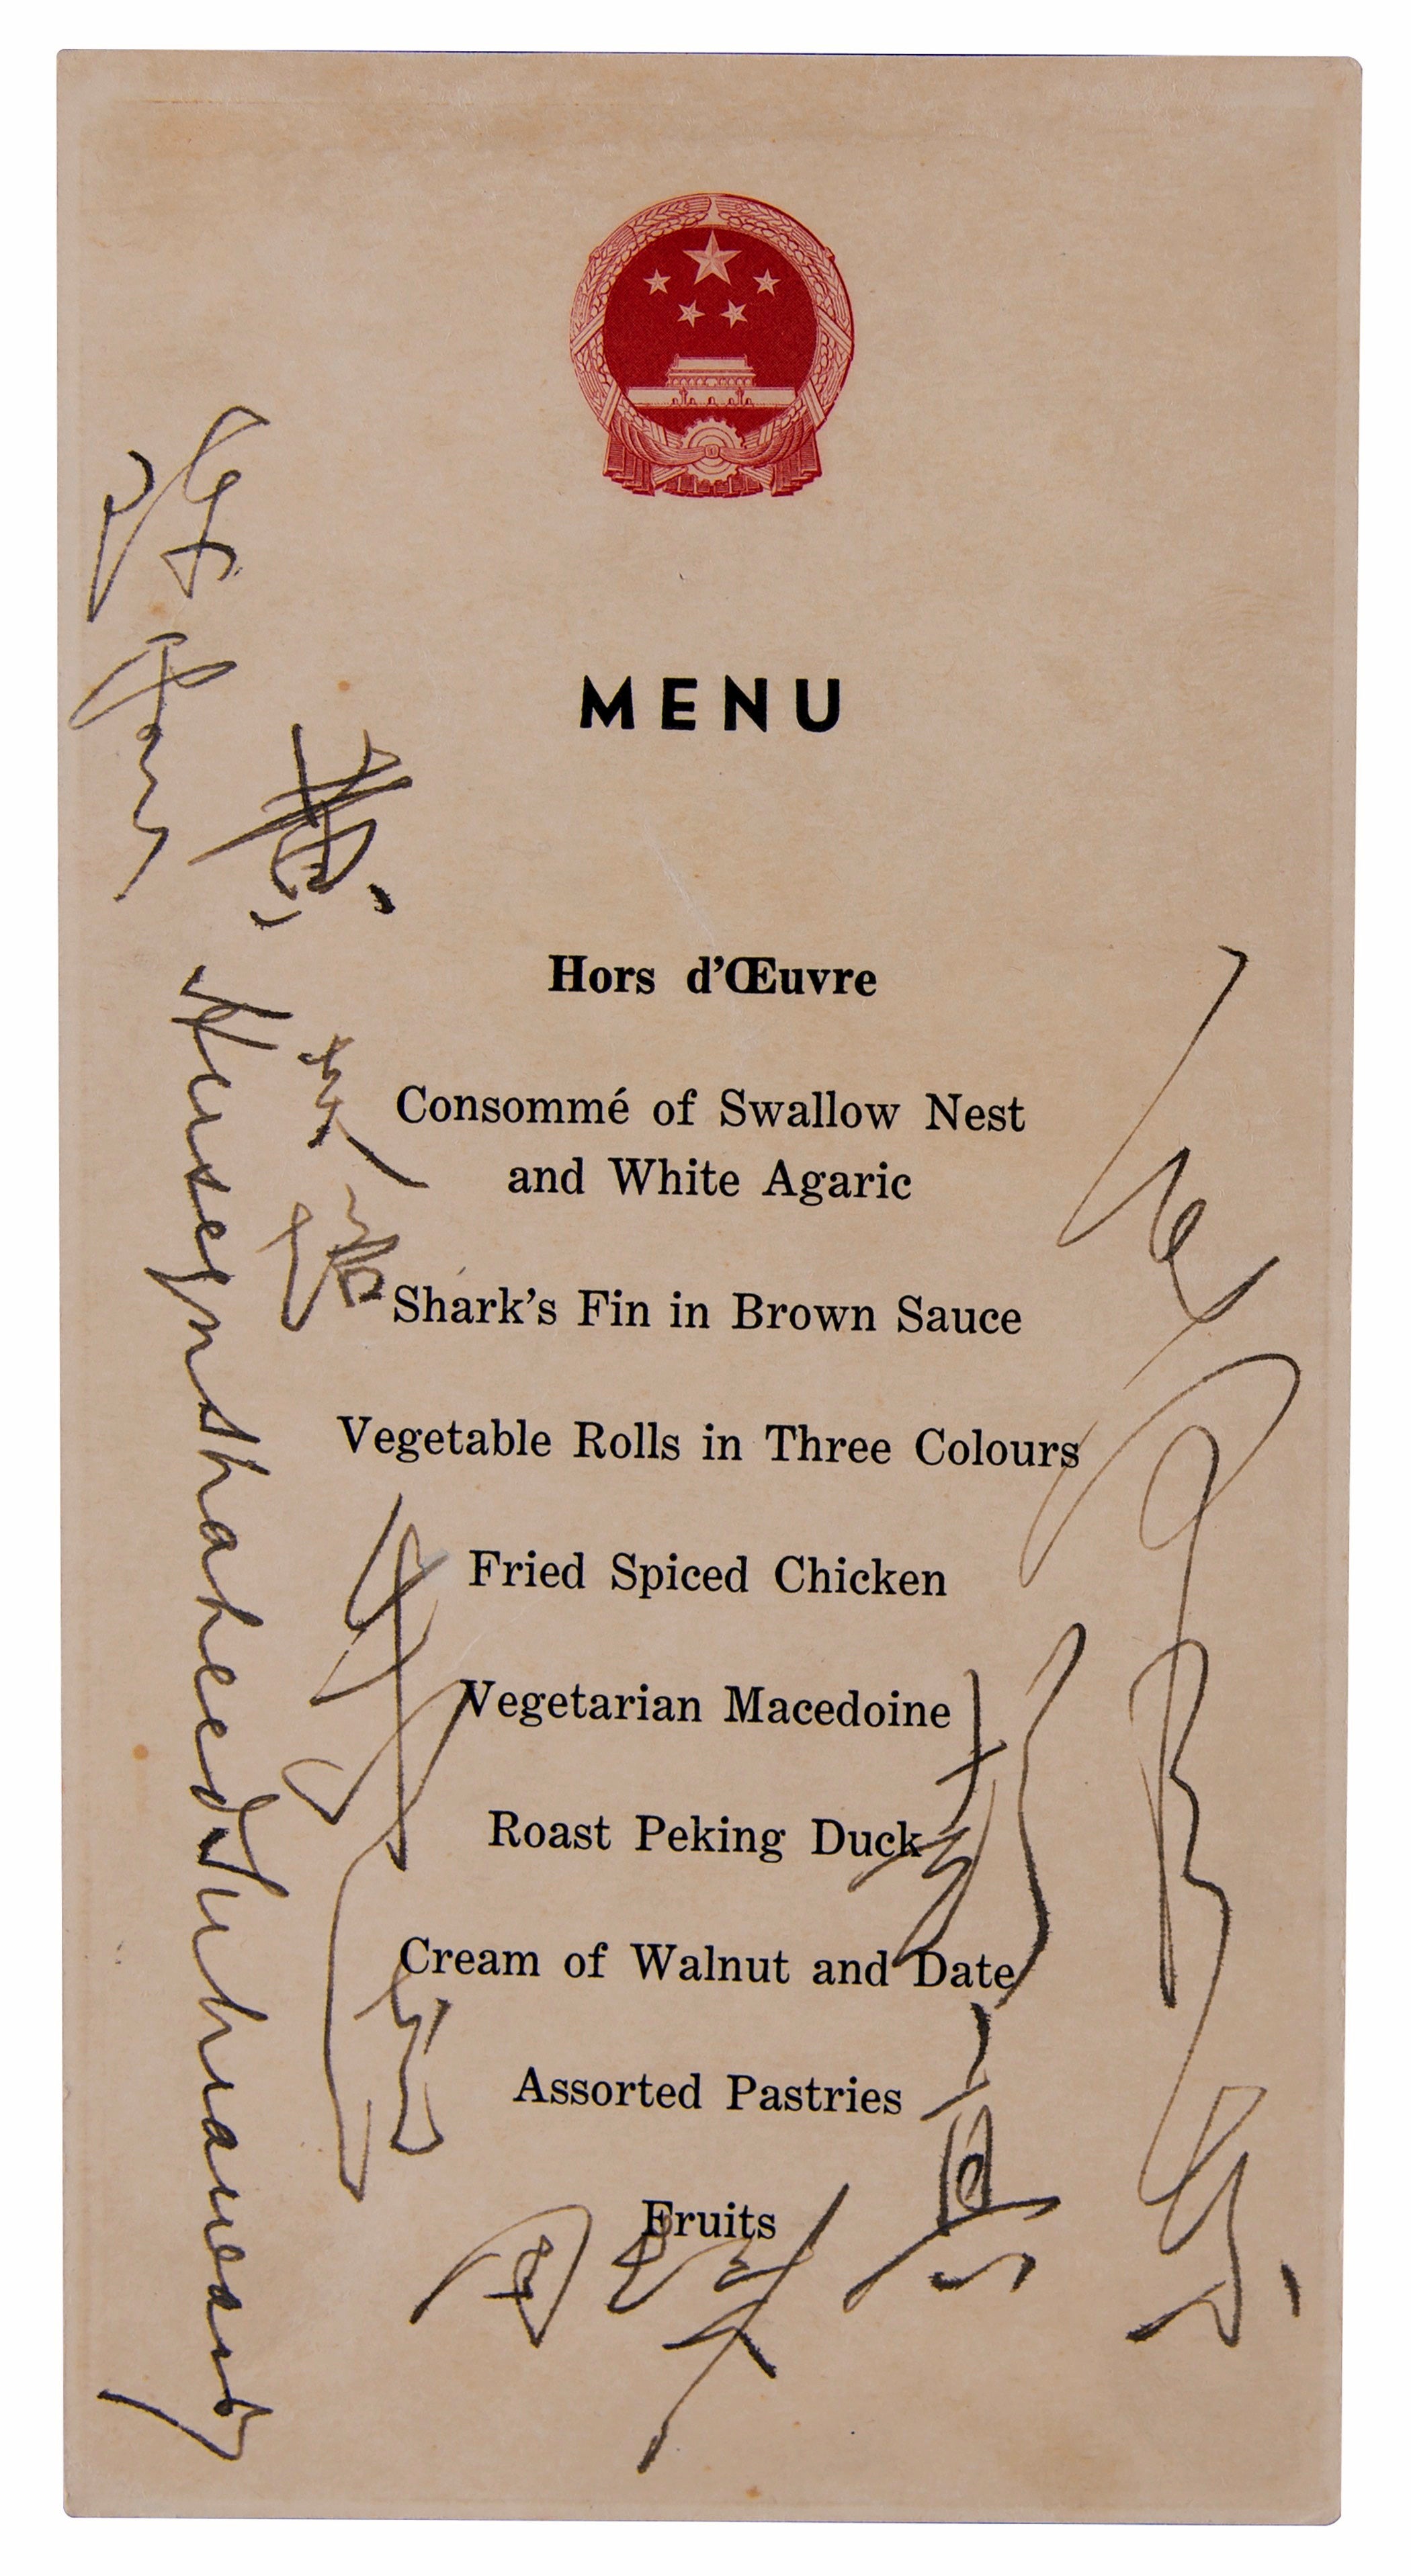 MENU
黄炎培
Hors d'Œuvre
Consommé of Swallow Nest
and White Agaric
Shark's Fin in Brown Sauce
Vegetable Rolls in Three Colours
Fried Spiced Chicken
Vegetarian Macedoine
Roast Peking Duck
Cream of Walnut and Date
Assorted Pastries
Fruits
Huseyn Shaheed Suhrawardy
彭真
毛泽东